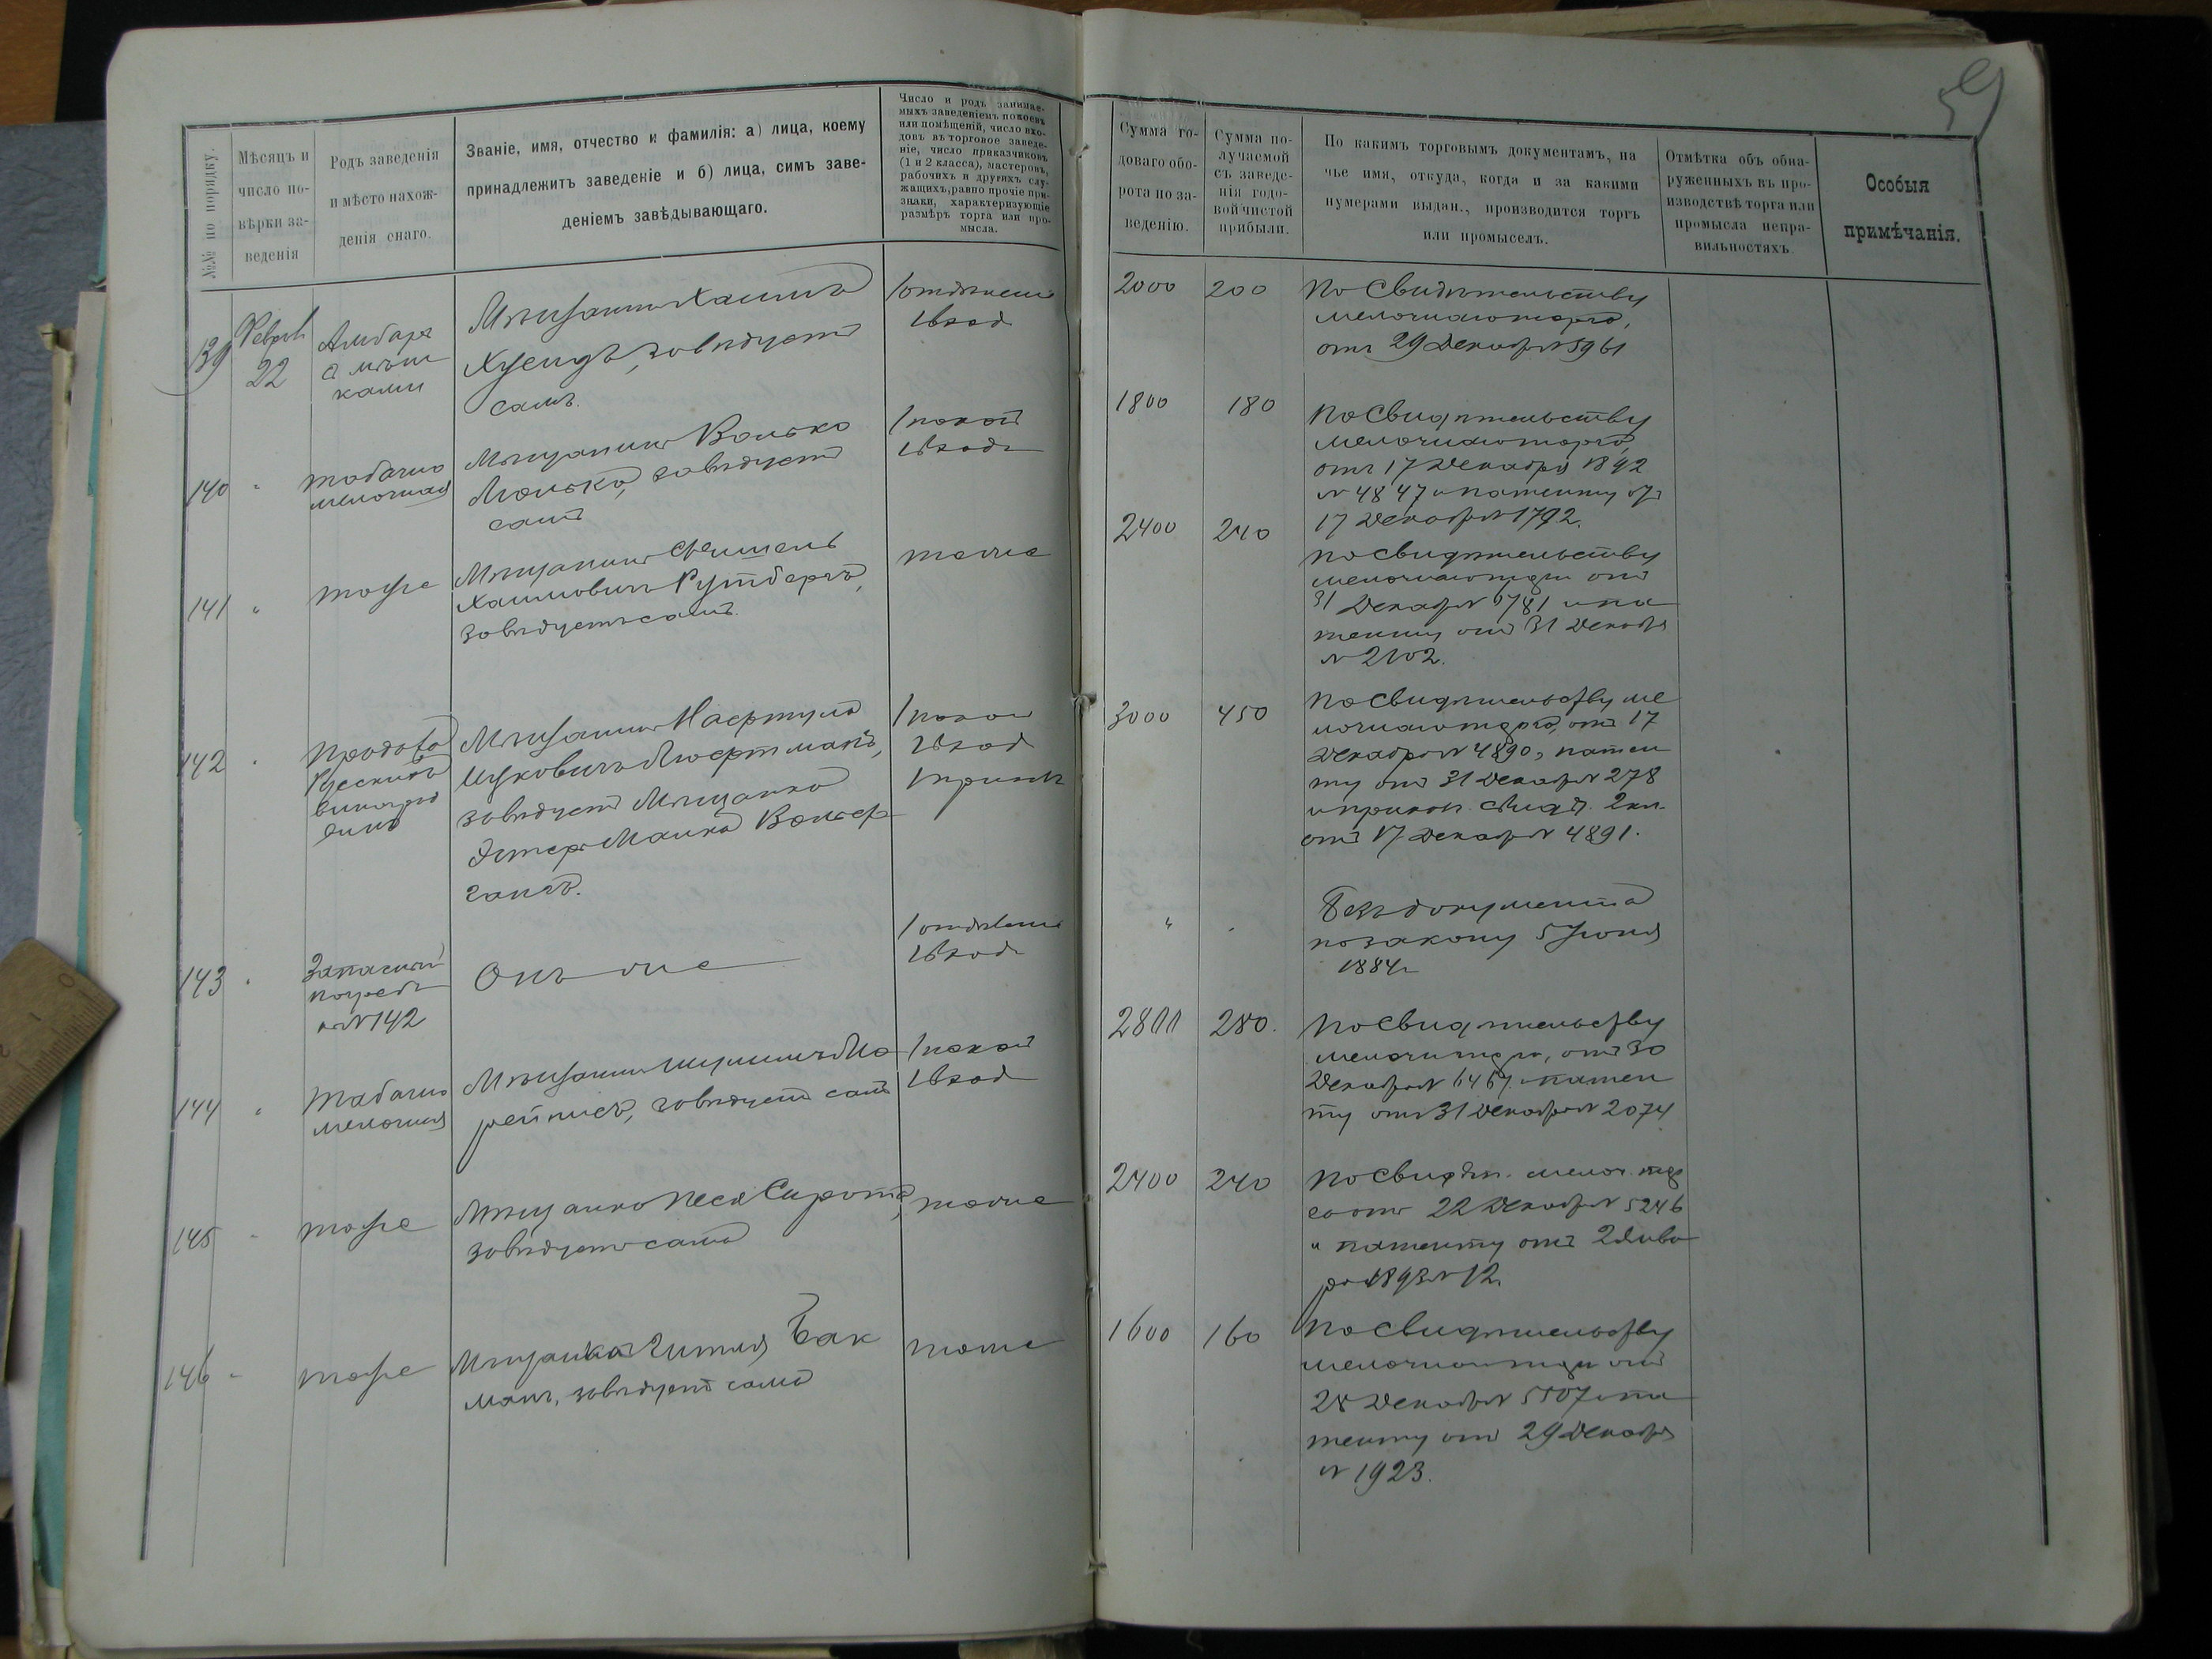 59
№№ по порядку.
Мѣсяцъ и
число по-
вѣрки за-
веденія
Родъ заведенія
и мѣсто нахож-
денія онаго.
Званіе, имя, отчество и фамилія: а) лица, коему
принадлежитъ заведеніе и б) лица, симъ заве-
деніемъ завѣдывающаго.
Число и родъ занимае-
мыхъ заведеніемъ покоевъ
или помѣщеній, число вхо-
довъ въ торговое заведе-
ніе, число приказчиковъ
(1 и 2 класса), мастеровъ,
рабочихъ и другихъ слу-
жащихъ, равно прочіе при-
знаки, характеризующіе
размѣръ торга или про-
мысла.
Сумма го-
доваго обо-
рота по за-
веденію.
Сумма по-
лучаемой
съ заведе-
нія годо-
вой чистой
прибыли.
По какимъ торговымъ документамъ, на
чье имя, откуда, когда и за какими
нумерами выдан., производится торгъ
или промыселъ.
Отмѣтка объ обна-
руженныхъ въ про-
изводствѣ торга или
промысла непра-
вильностяхъ.
Особыя
примѣчанія.
139
22
Амбаръ
с мѣш
ками
Мѣщанинъ Хаимъ
завѣдуетъ
самъ.
1 отдѣленіе
1 вход
2000
200
По Свидѣтельству
мелочнаго торга,
отъ 29 Декабр № 5961
140
"
Табачно
мелочная
Мѣщанинъ Волько
завѣдуетъ
самъ
1 покой
1 входъ
1800
180
По Свидѣтельству
мелочнаго торга,
отъ 17 Декабря 1892
№ 4847 и патенту от
17 Декабр № 1792.
141
"
тоже
Мѣщанинъ Фишель
Хаимовичъ Гутбергъ,
завѣдуетъ самъ.
тоже
2400
240
По свидѣтельству
мелочнаго торги отъ
31 Декабр № 6781 и па
тенту отъ 31 Декабря
№ 2102.
142
"
Продажа
Русскихъ
виноград
винъ
Мѣщанинъ Нафтула
Ицковичъ Люфтманъ,
завѣдуетъ Мѣщанка
Эстер Малка Вольф
гангъ.
1 покой
2 вход
1 приказ
3000
450
По Свидѣтельству ме
лочнаго торга, отъ 17
Декабря № 4890, патен
ту отъ 31 Декабр № 278
и приказ. Свидѣт. 2 кл.
отъ 17 Декабр № 4891.
143
"
Запасный
погребъ
к № 142
Онъ же
1 отдѣленіе
1 входъ
"
"
Безъ документа
по закону 5 Іюня
1884 г
144
"
Табачно
мелочная
завѣдуетъ самъ
1 покой
1 вход
2800
280.
По Свидѣтельству
мелочн торга, отъ 30
Декабря № 6467. патен
ту отъ 31 Декабря № 2074
145
"
тоже
Мѣщанка Песя Сирота,
завѣдуетъ сама
тоже
2400
240
По Свидѣт. мелоч. тор
га отъ 22 Декабр № 5246
и патенту отъ 2 Янва
ря 1893 № 12.
146
"
тоже
Мѣщанка Гитля Бак
манъ, завѣдуетъ сама
тоже
1600
160
По Свидѣтельству
мелочнаго торги отъ
28 Декабр № 5507 и па
тенту отъ 29 Декабря
№ 1923.